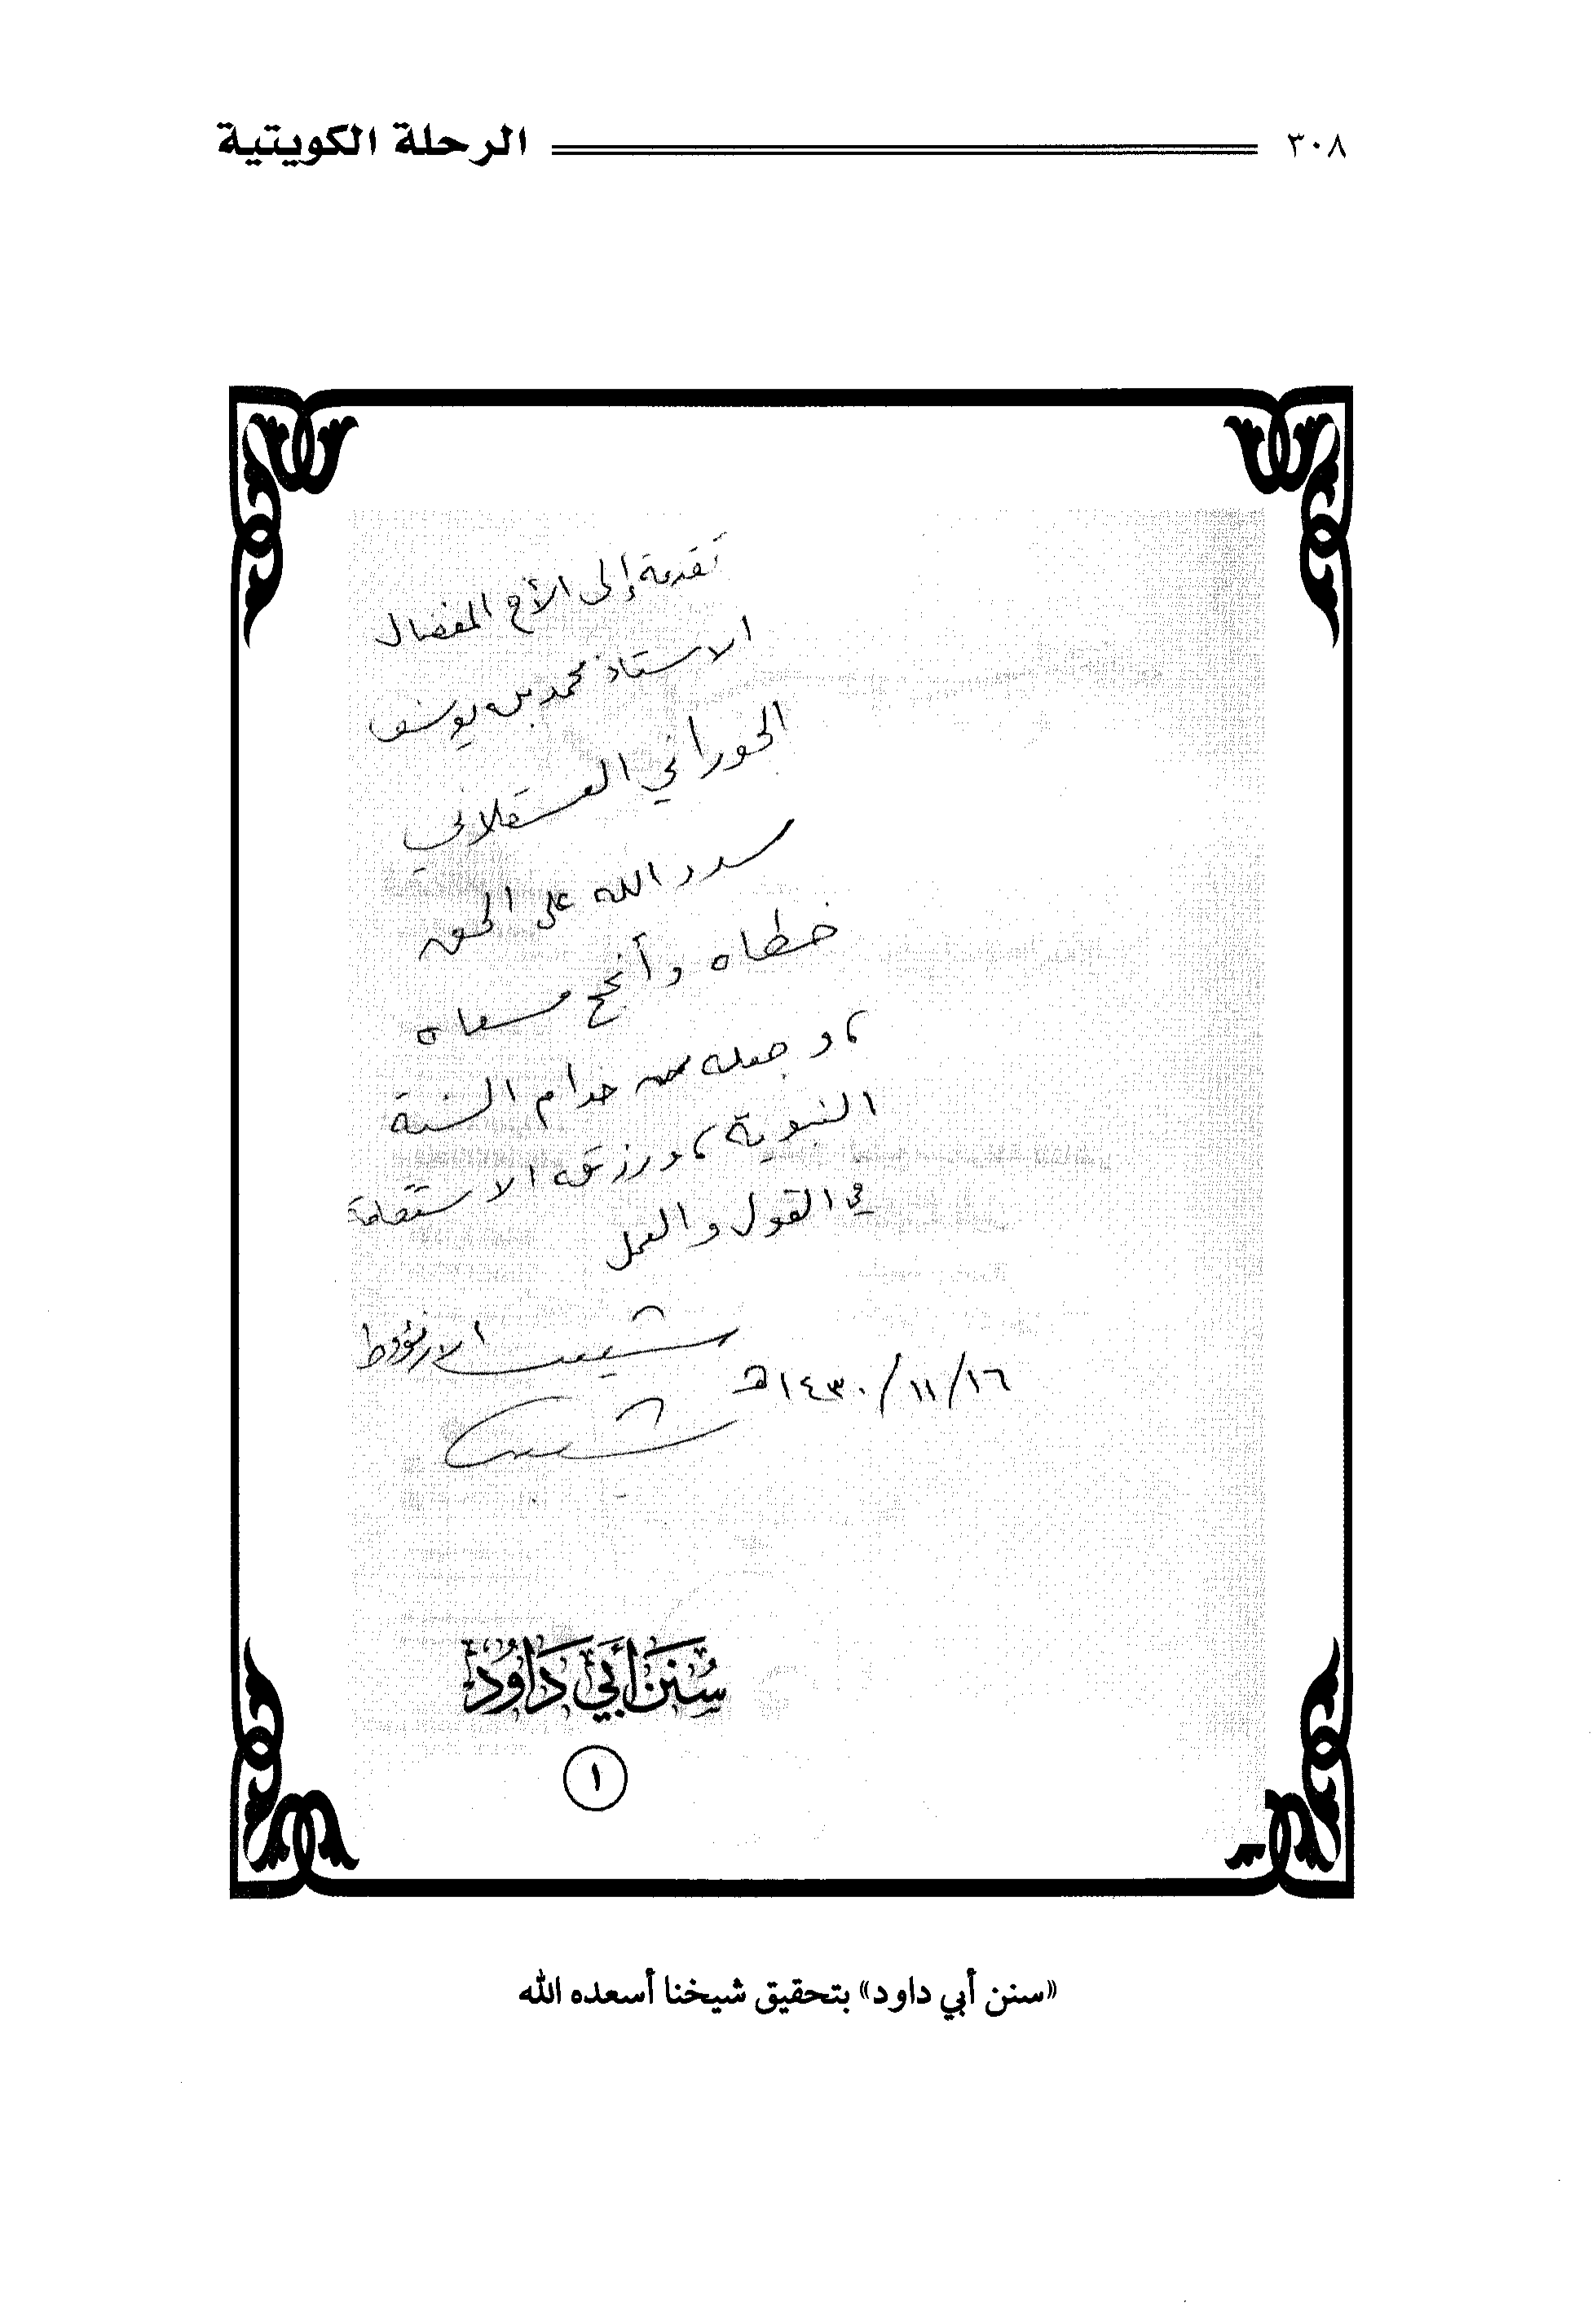 ٣٠٨ الرحلة الكويتية
تقدمة إلى الأخ المفضال
الاستاذ محمد بن يوسف
الحوراني العسقلاني
سدد الله على الحق
خطاه وأنجح مسعاه
، وجعله من خدام السنة
النبوية ، ورزقه الاستقامة
في القول والعمل
شعيب الارنؤوط
١٦/ ١١/ ١٤٣٠هـ
شعيب
سُنَن أَبِي دَاوُد
١
«سنن أبي داود» بتحقيق شيخنا أسعده الله